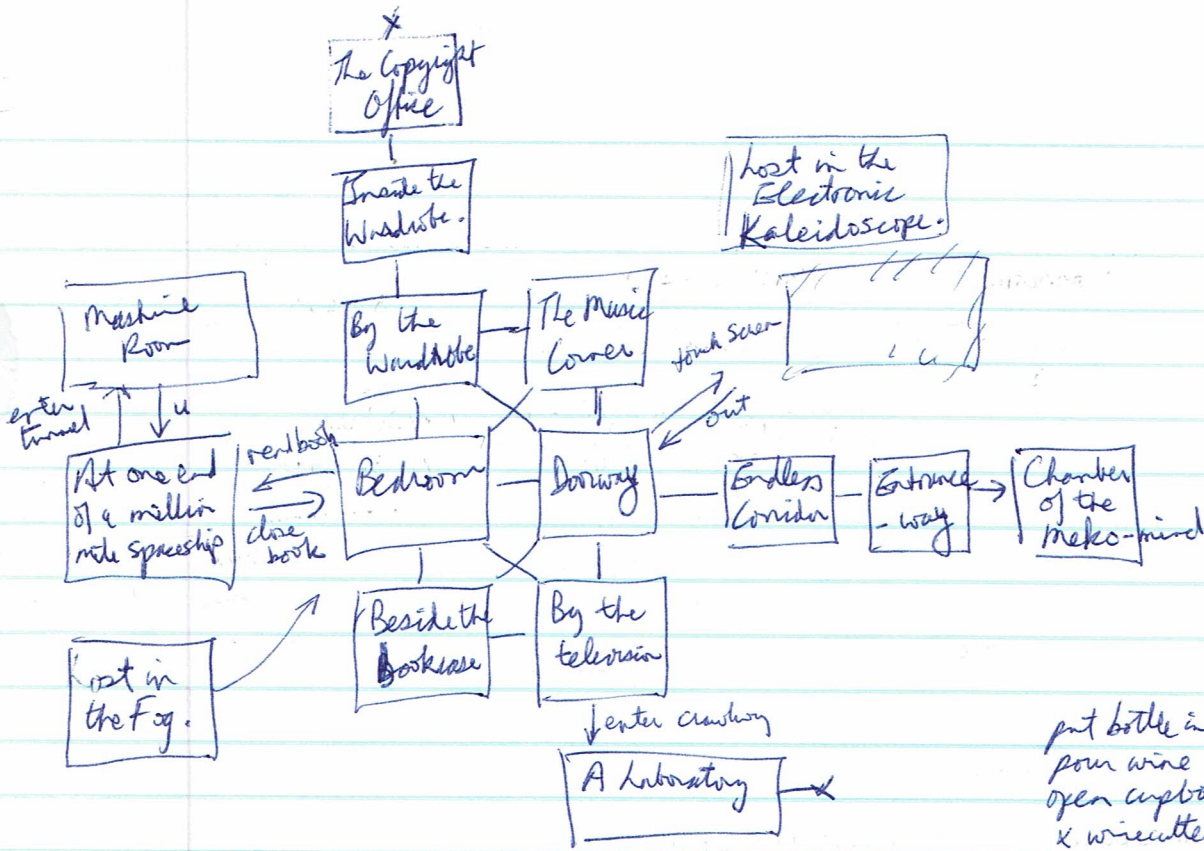 x
The Copyright
Office
Inside the
Wardrobe.
Lost in the
Electronic
Kaleidoscope.
Machine
Room
By the
Wardrobe
The Music
Corner
touch screen
out
enter
tunnel
u
At one end
of a million
mile spaceship
read book
close
book
Bedroom
Doorway
Endless
Corridor
Entrance
-way
Chamber
of the
Meko-mind
Lost in
the Fog.
Beside the
bookcase
By the
television
enter crawlway
A Laboratory
x
put bottle in
pour wine
open cupbo
x wirecutte